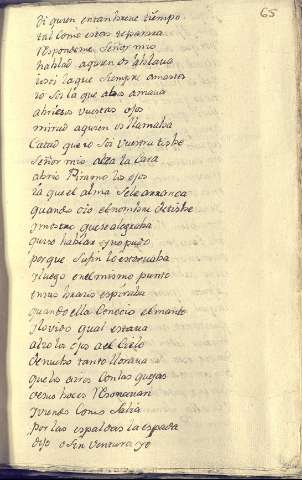 65
Di quien en tan breve tiempo
tal como estas te parava
Respondeme Señor mio
hablad a quien os hablava
yo soi la que siempre amastes
yo soi la que os amava
abrid esos vuestros ojos
mirad a quien os llamaba
Catad que yo soi vuestra tisbe
Señor mio alza la Cara
abrio Piramo los ojos
ya que el alma se le arranca
quando oio el nombre de tisbe
y mostro que se alegraba
quiso hablar y no pudo
porque su fin lo estorvaba
y luego en el mismo punto
en sus brazos espiraba
quando ella Conocio el manto
y lo vido qual estava
alzo los ojos a el Cielo
de nuebo tanto llorava
que los ayres Con las quejas
de sus boces Resonavan
y viendo Como Salia
por las espaldas la espada
dijo o sin ventura yo